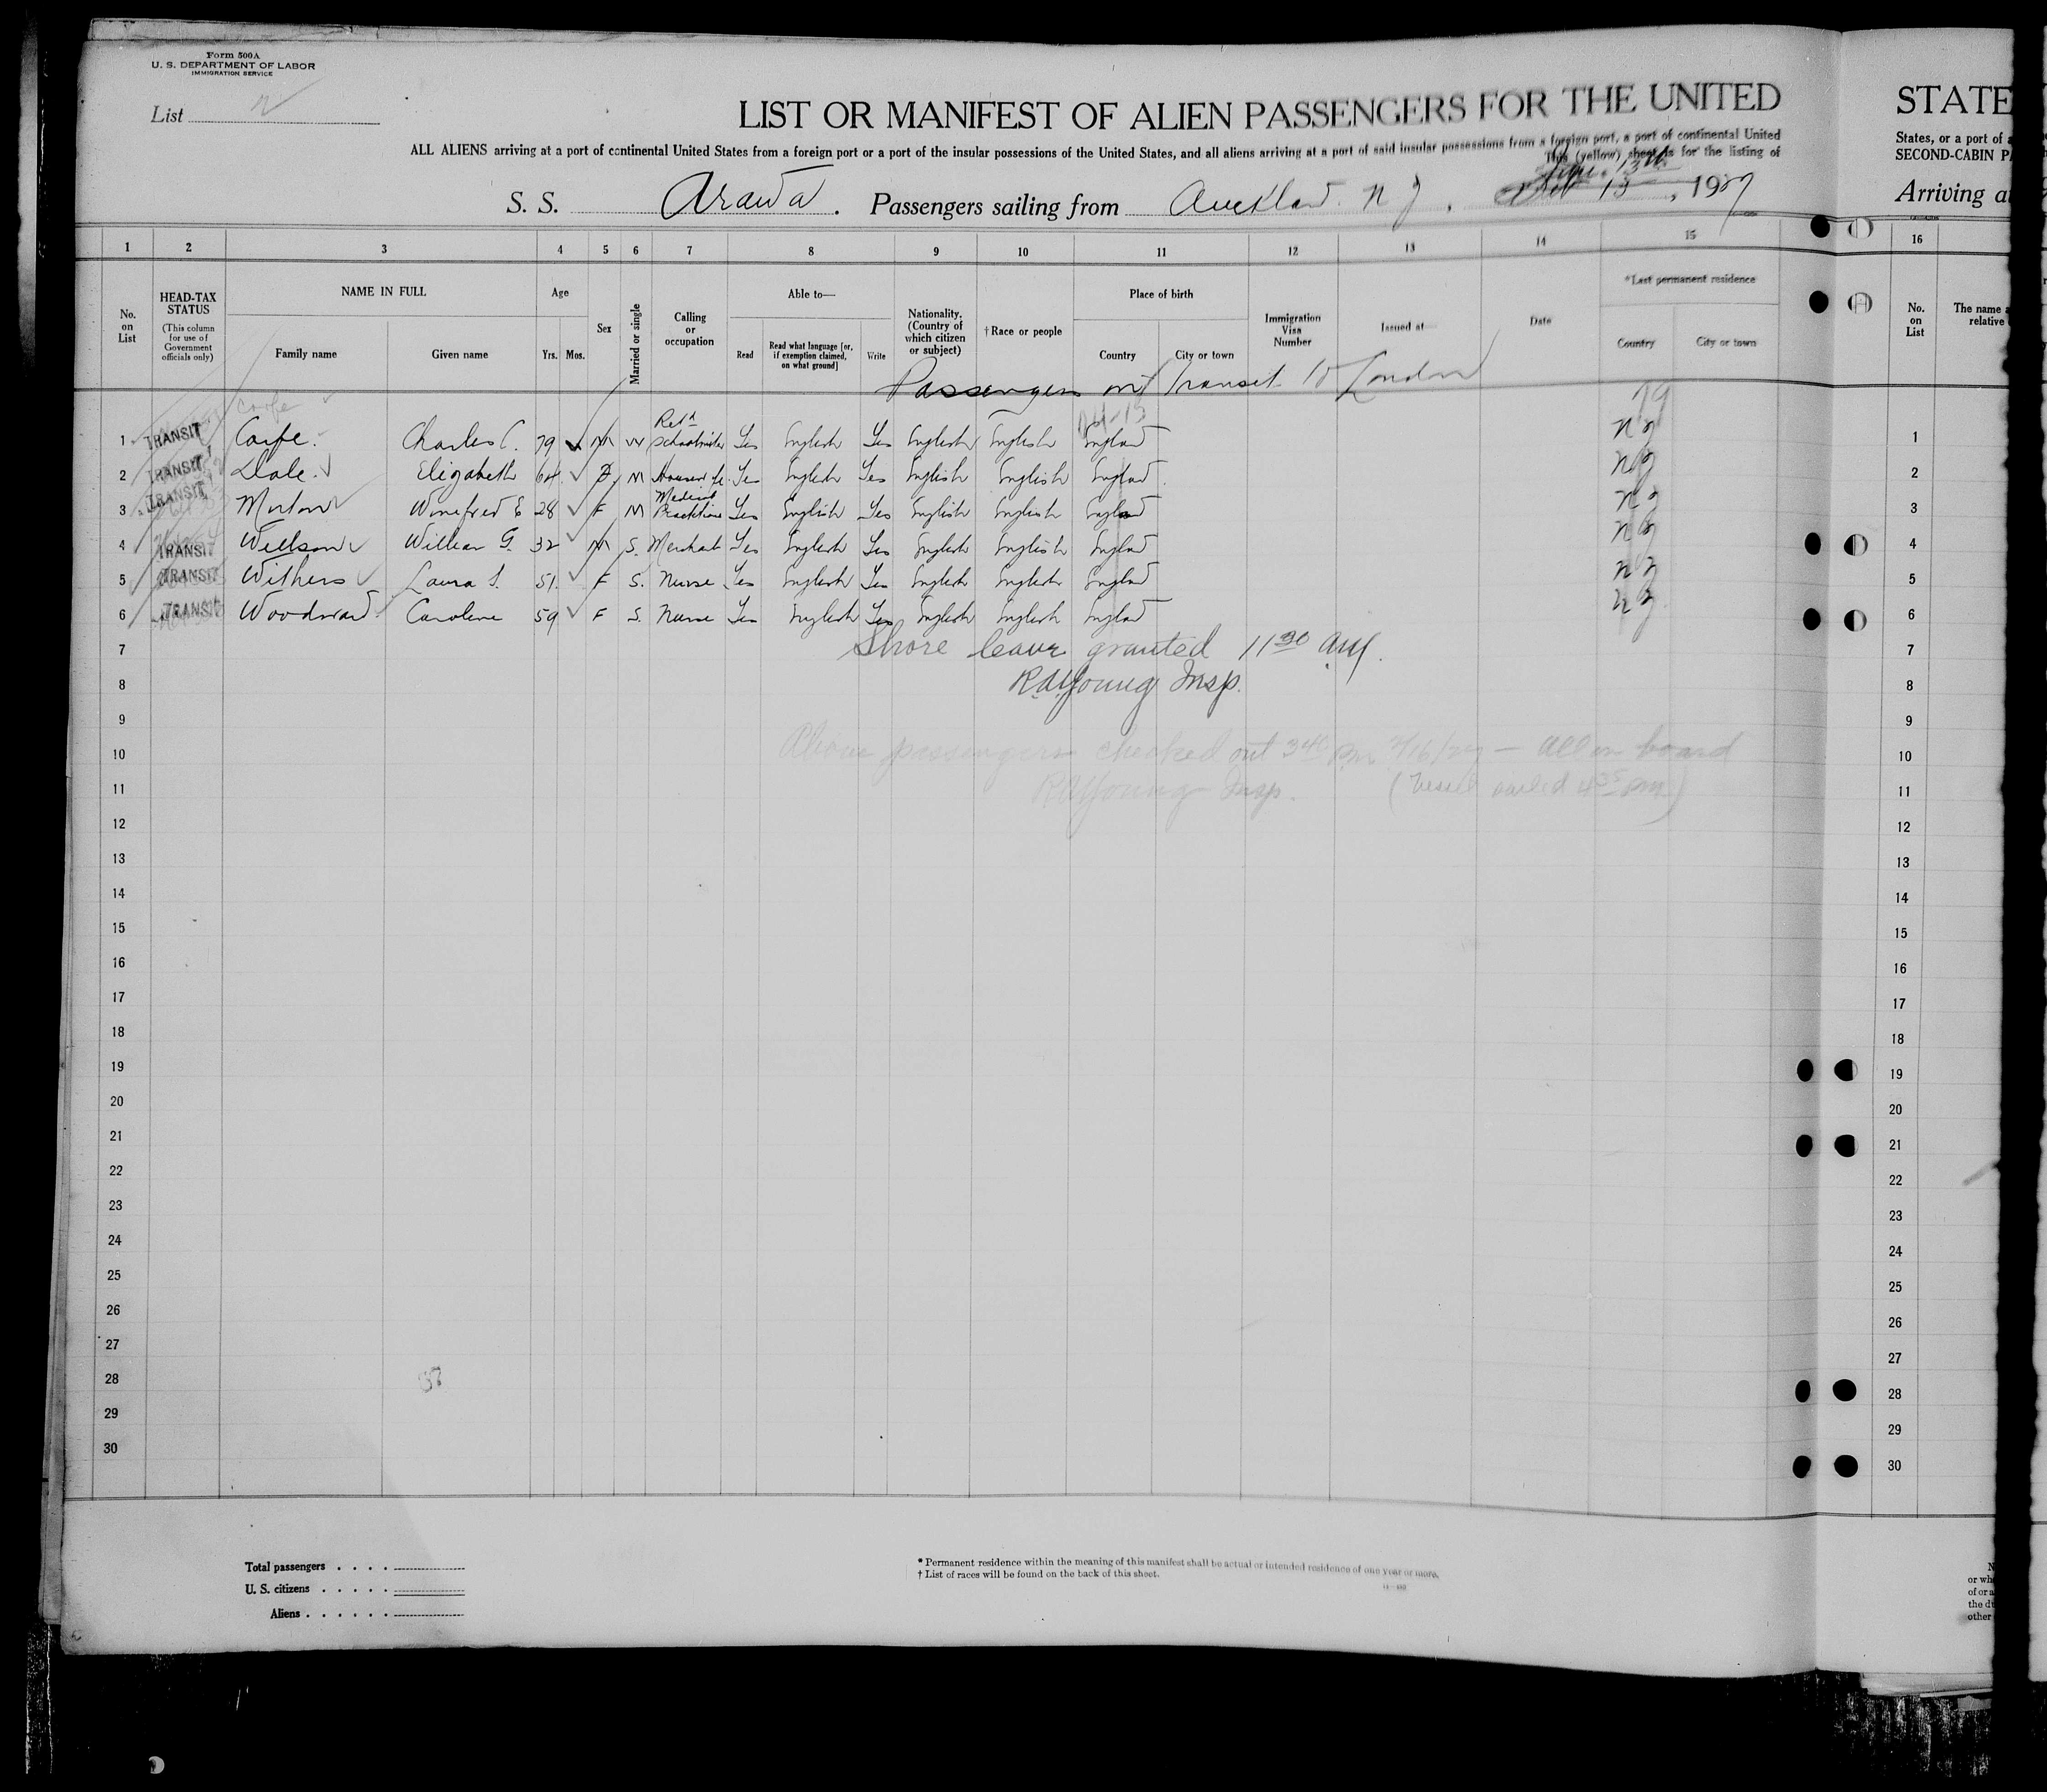 Form 500A
U. S. DEPARTMENT OF LABOR
IMMIGRATION SERVICE
List 2
LIST OR MANIFEST OF ALIEN PASSENGERS FOR THE UNITED
ALL ALIENS arriving at a port of continental United States from a foreign port or a port of the insular possessions of the United States, and all aliens arriving at a port of said insular possessions from a foreign port, a port of continental United
This (yellow) sheet is for the listing of
S. S. Arawa . Passengers sailing from Auckland. N Z , 13 , 1927
1 2 3 4 5 6 7 8 9 10 11 12 13 14 15
No. on List
HEAD-TAX STATUS
(This column for use of Government officials only)
NAME IN FULL
Family name Given name
Age
Yrs. Mos.
Sex
Married or single
Calling or occupation
Able to—
Read
Read what language [or, if exemption claimed, on what ground]
Write
Nationality. (Country of which citizen or subject)
†Race or people
Place of birth
Country City or town
Immigration Visa Number
Issued at—
Date
*Last permanent residence
Country City or town
Passengers in Transit to London
1 TRANSIT Coupe. Charles C. 79 M W Retd Schoolmaster Yes English Yes English English England N Z
2 TRANSIT Dale. Elizabeth 64 F M Housewife Yes English Yes English English England N Z
3 TRANSIT Morton Winefred E 28 F M Medical Practitioner Yes English Yes English English England N Z
4 TRANSIT Willson William G. 32 M S. Merchant Yes English Yes English English England N Z
5 TRANSIT Withers Laura S. 51. F S. Nurse Yes English Yes English English England N Z
6 TRANSIT Woodward Caroline 59 F S. Nurse Yes English Yes English English England N Z
7 Shore leave granted 11 30 AM.
8 RAYoung Insp.
9
10 Above passengers checked out 3 40 P.M. 2/16/27 — All on board
11 RAYoung Insp. (Vessel sailed 4 35 PM)
12
13
14
15
16
17
18
19
20
21
22
23
24
25
26
27
28
29
30
Total passengers . . . .
U. S. citizens . . . . .
Aliens . . . . . .
* Permanent residence within the meaning of this manifest shall be actual or intended residence of one year or more.
† List of races will be found on the back of this sheet.
STATE
States, or a port of
SECOND-CABIN P
Arriving a
16
No. on List
The name
relative
1
2
3
4
5
6
7
8
9
10
11
12
13
14
15
16
17
18
19
20
21
22
23
24
25
26
27
28
29
30
or wh
of or a
the d
other